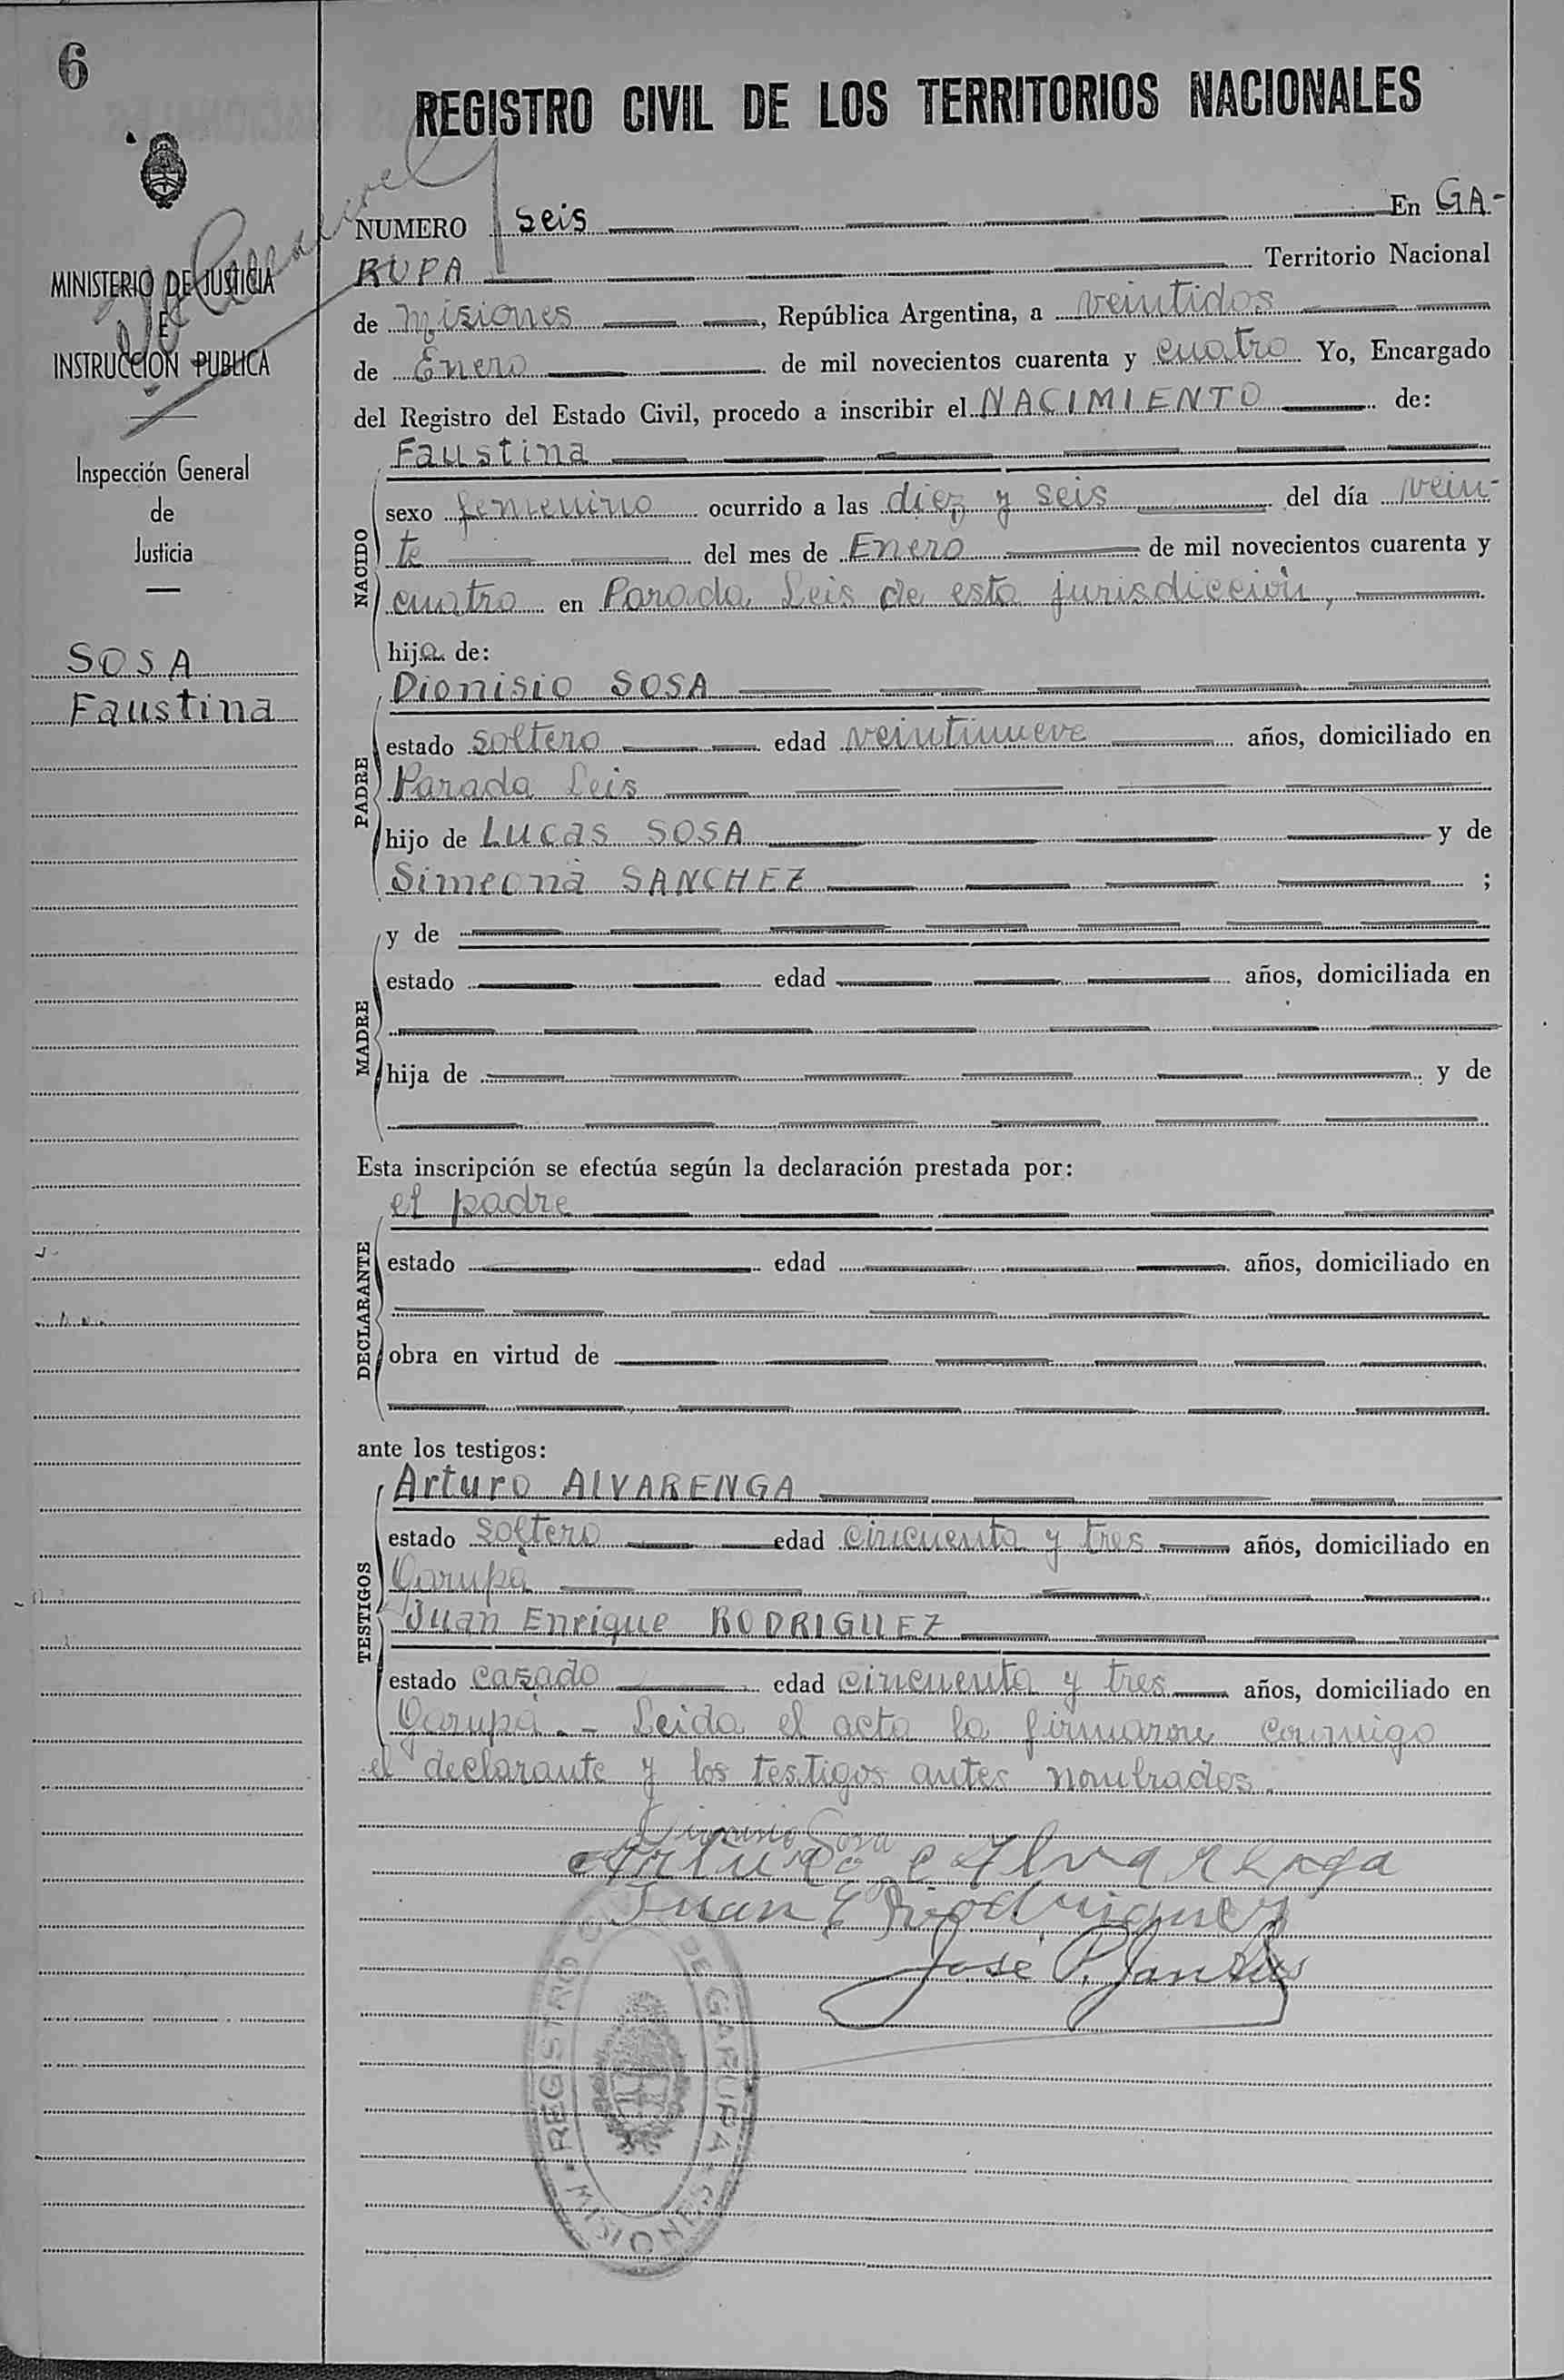 6
REGISTRO CIVIL DE LOS TERRITORIOS NACIONALES
NUMERO seis En GA-
RUPA Territorio Nacional
de Misiones, República Argentina, a veintidos
de Enero de mil novecientos cuarenta y cuatro Yo, Encargado
del Registro del Estado Civil, procedo a inscribir el NACIMIENTO de:
Faustina
sexo femenino ocurrido a las diez y seis del día vein-
te del mes de Enero de mil novecientos cuarenta y
cuatro en Parada Leis de esta jurisdicción,
hija de:
NACIDO
Dionisio SOSA
estado soltero edad veintinueve años, domiciliado en
Parada Leis
hijo de Lucas SOSA y de
Simeona SANCHEZ ;
PADRE
y de
estado edad años, domiciliada en
hija de y de
MADRE
Esta inscripción se efectúa según la declaración prestada por:
el padre
estado edad años, domiciliado en
obra en virtud de
DECLARANTE
ante los testigos:
Arturo ALVARENGA
estado soltero edad cincuenta y tres años, domiciliado en
Garupá
Juan Enrique RODRIGUEZ
estado casado edad cincuenta y tres años, domiciliado en
Garupá.- Leida el acta la firmaron conmigo
TESTIGOS
el declarante y los testigos antes nombrados.
Dionisio Sosa
Arturo Alvarenga
Juan E Rodriguez
José P.
REGISTRO CIVIL DE GARUPA
MISIONES
MINISTERIO DE JUSTICIA
E
INSTRUCCION PUBLICA
Inspección General
de
Justicia
SOSA
Faustina